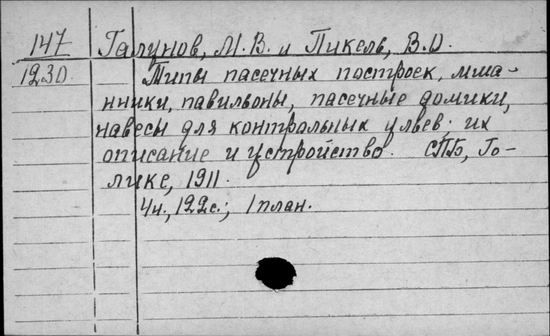 147 Галунов, М. В. и Пикель, В. О.
1230. Типы пасечных построек, мша-
нники, павильоны, пасечные домики,
навесы для контрольных ульев; их
описание и устройство. СПБ, Го-
лике, 1911.
4н., 122с.; 1 план.